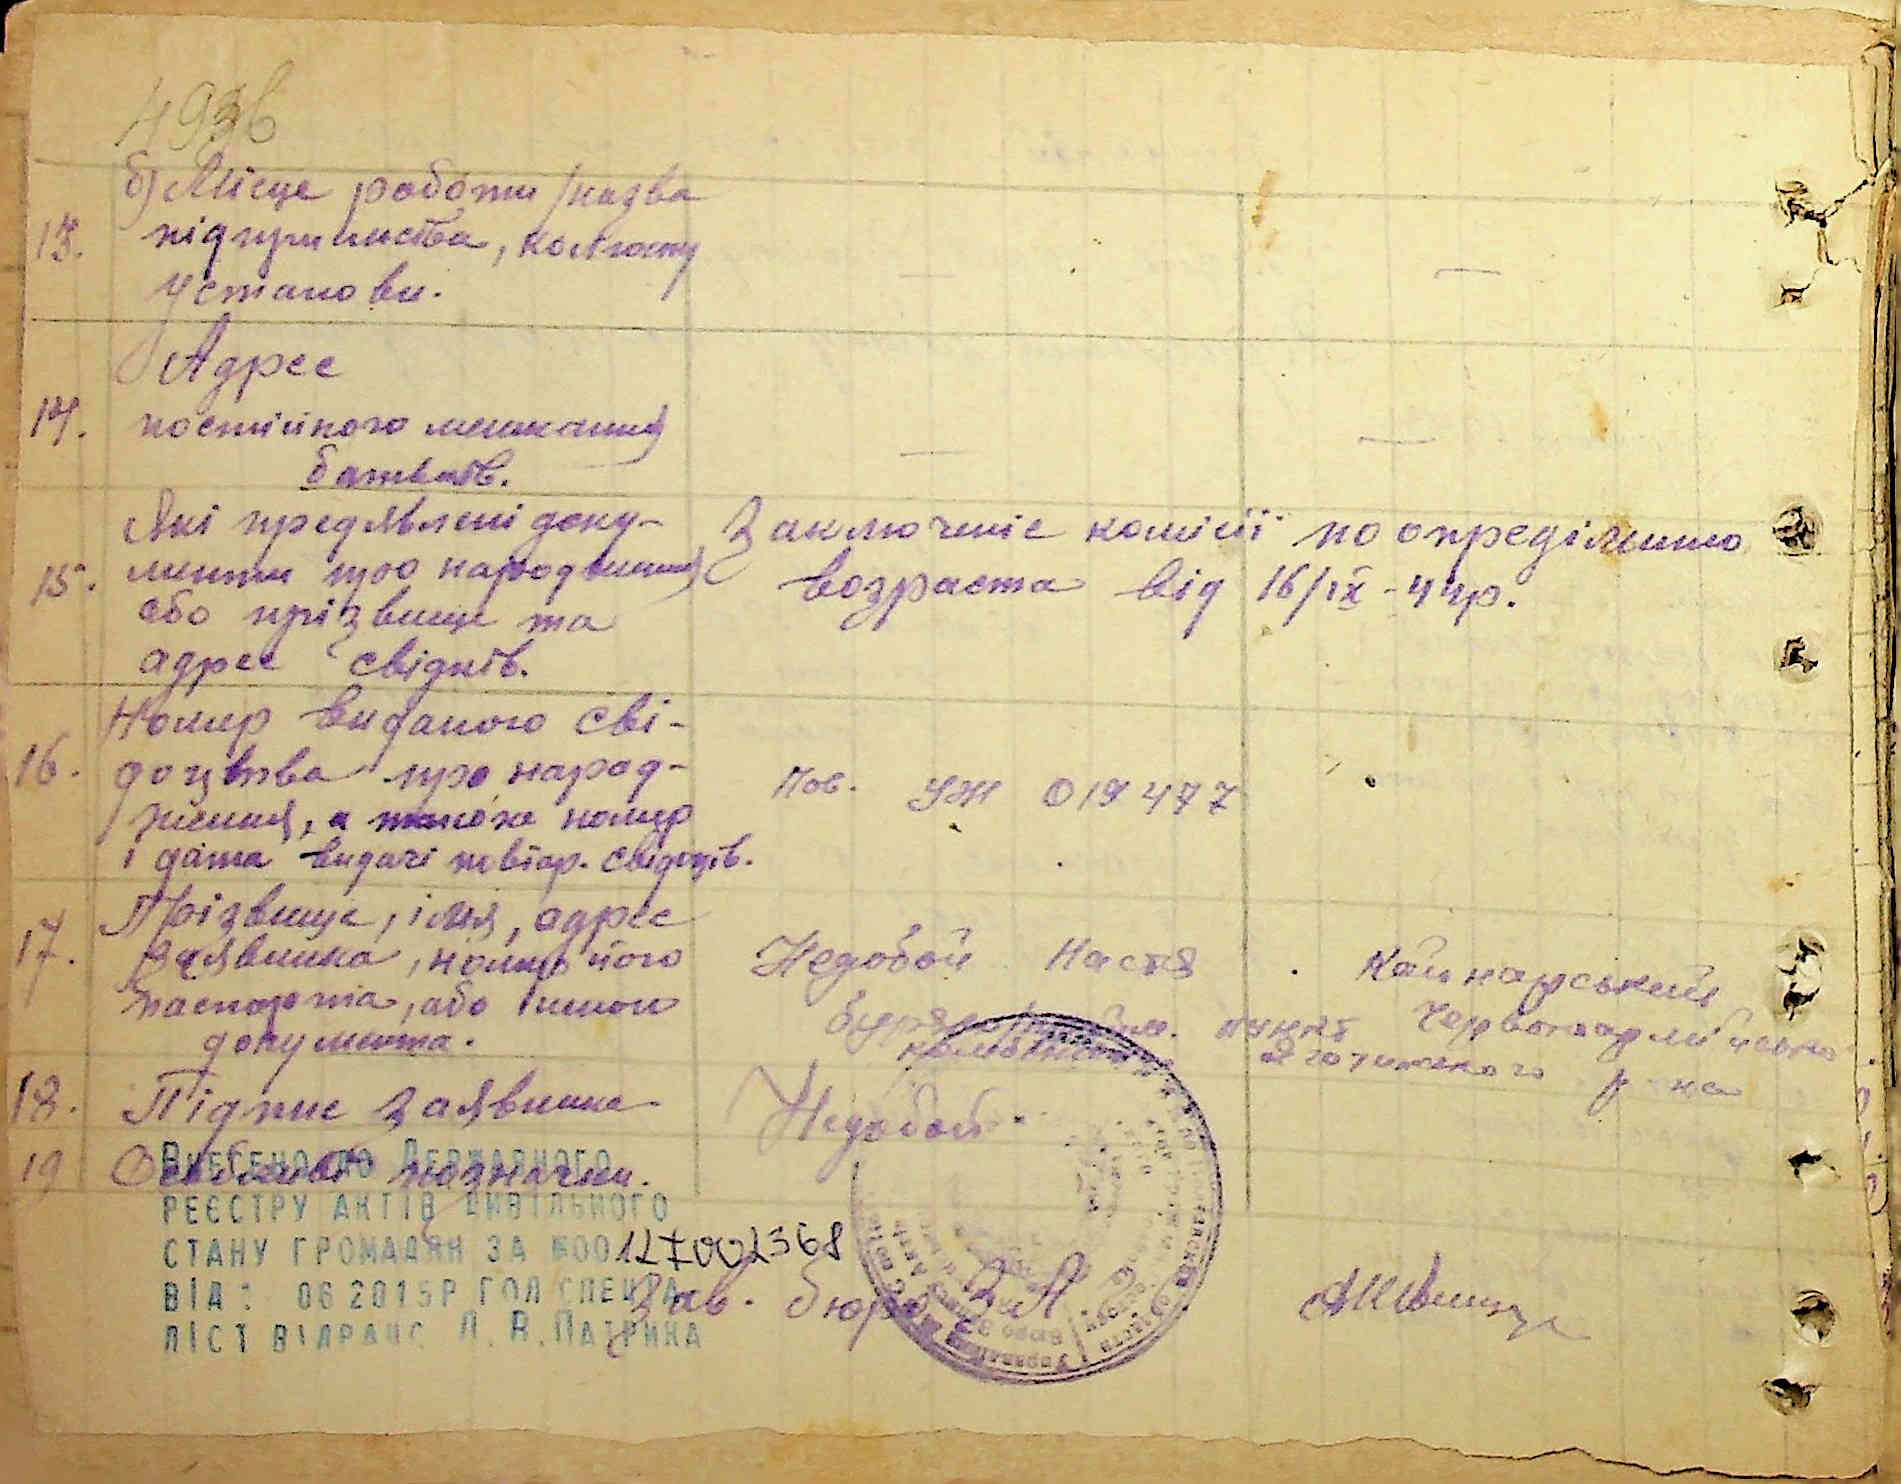 493б
б) Місце роботи /назва
13. підприємства, колгоспу
установи.
— —
Адрес
14. постійного мешкання
батьків.
— —
Які предявлені доку-
15. менти про народження
або прізвище та
адрес свідків.
Заключеніє комісії по опреділенню
возраста від 16/IX - 44р.
Номер виданого сві-
16. доцтва про народ-
ження, а також номер
і дата видачі повтор. свідоцтв.
Пов. УЖ 019477
Прізвище, імя, адрес
17. заявника, номер його
паспорта, або іншого
документа.
Недобой Настя. Кайнарський
бурякоприйом. пункт Червоноармійсько
Яготинського р-на
18. Підпис заявника
Недобой
19 Особливі позначки.
Внесено до Державного
реєстру актів цивільного
стану громадян за №00127002368
від: 06 2015р гол спеціа
ліст відрацс Л. В. Патрика
Зав. бюро ЗАГС